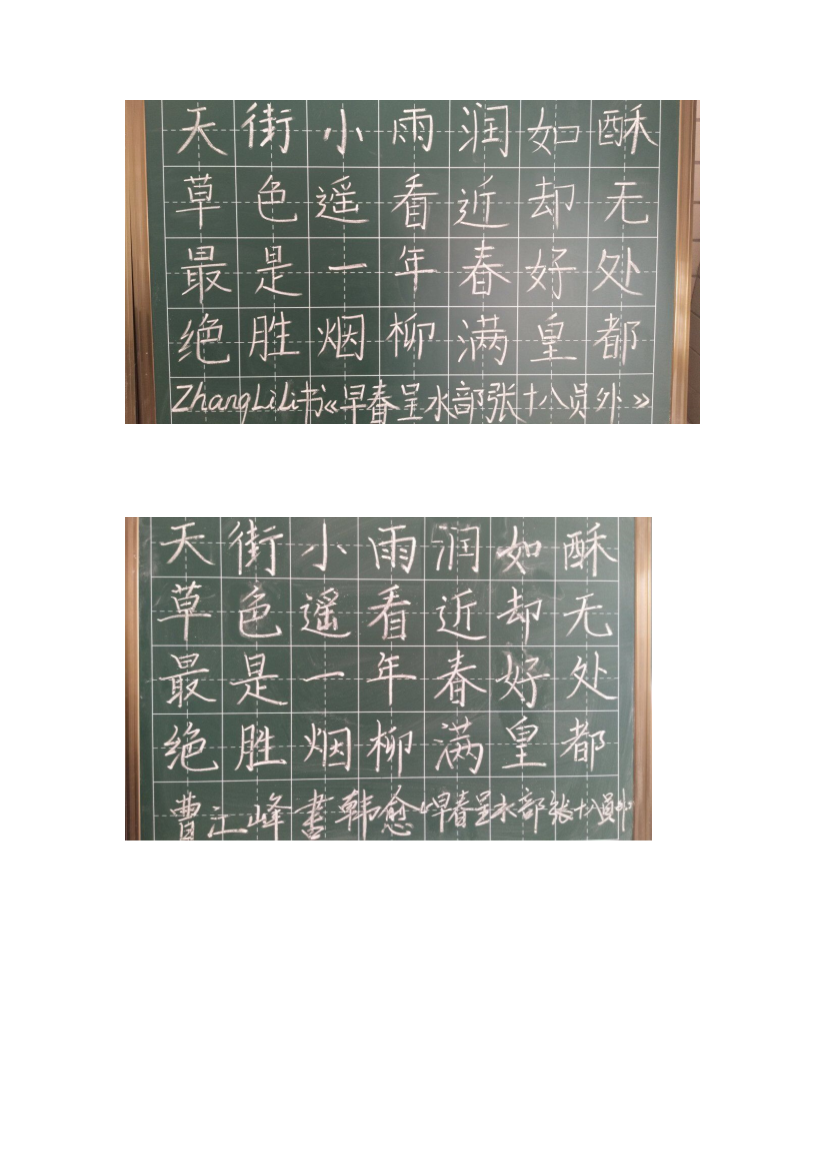 天街小雨润如酥
草色遥看近却无
最是一年春好处
绝胜烟柳满皇都
ZhangLiLi书《早春呈水部张十八员外》
天街小雨润如酥
草色遥看近却无
最是一年春好处
绝胜烟柳满皇都
曹江峰書韩愈《早春呈水部张十八員外》